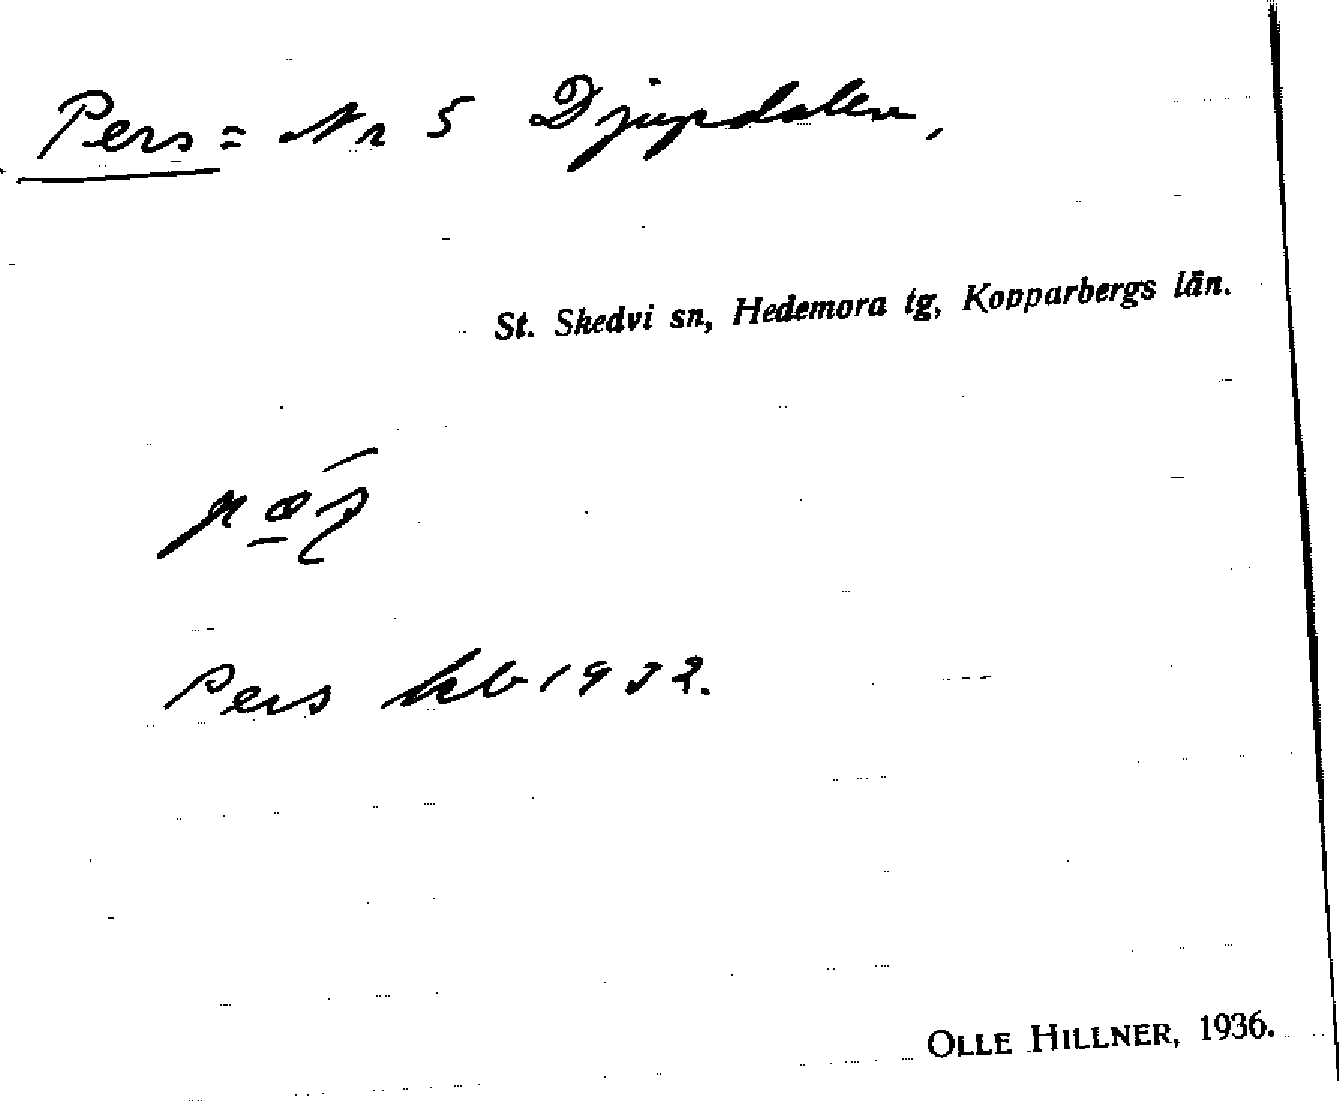 Pers = Nr 5 Djupdalen,
St. Skedvi sn, Hedemora tg, Kopparbergs län.
Pers kb 1932.
OLLE HILLNER, 1936.